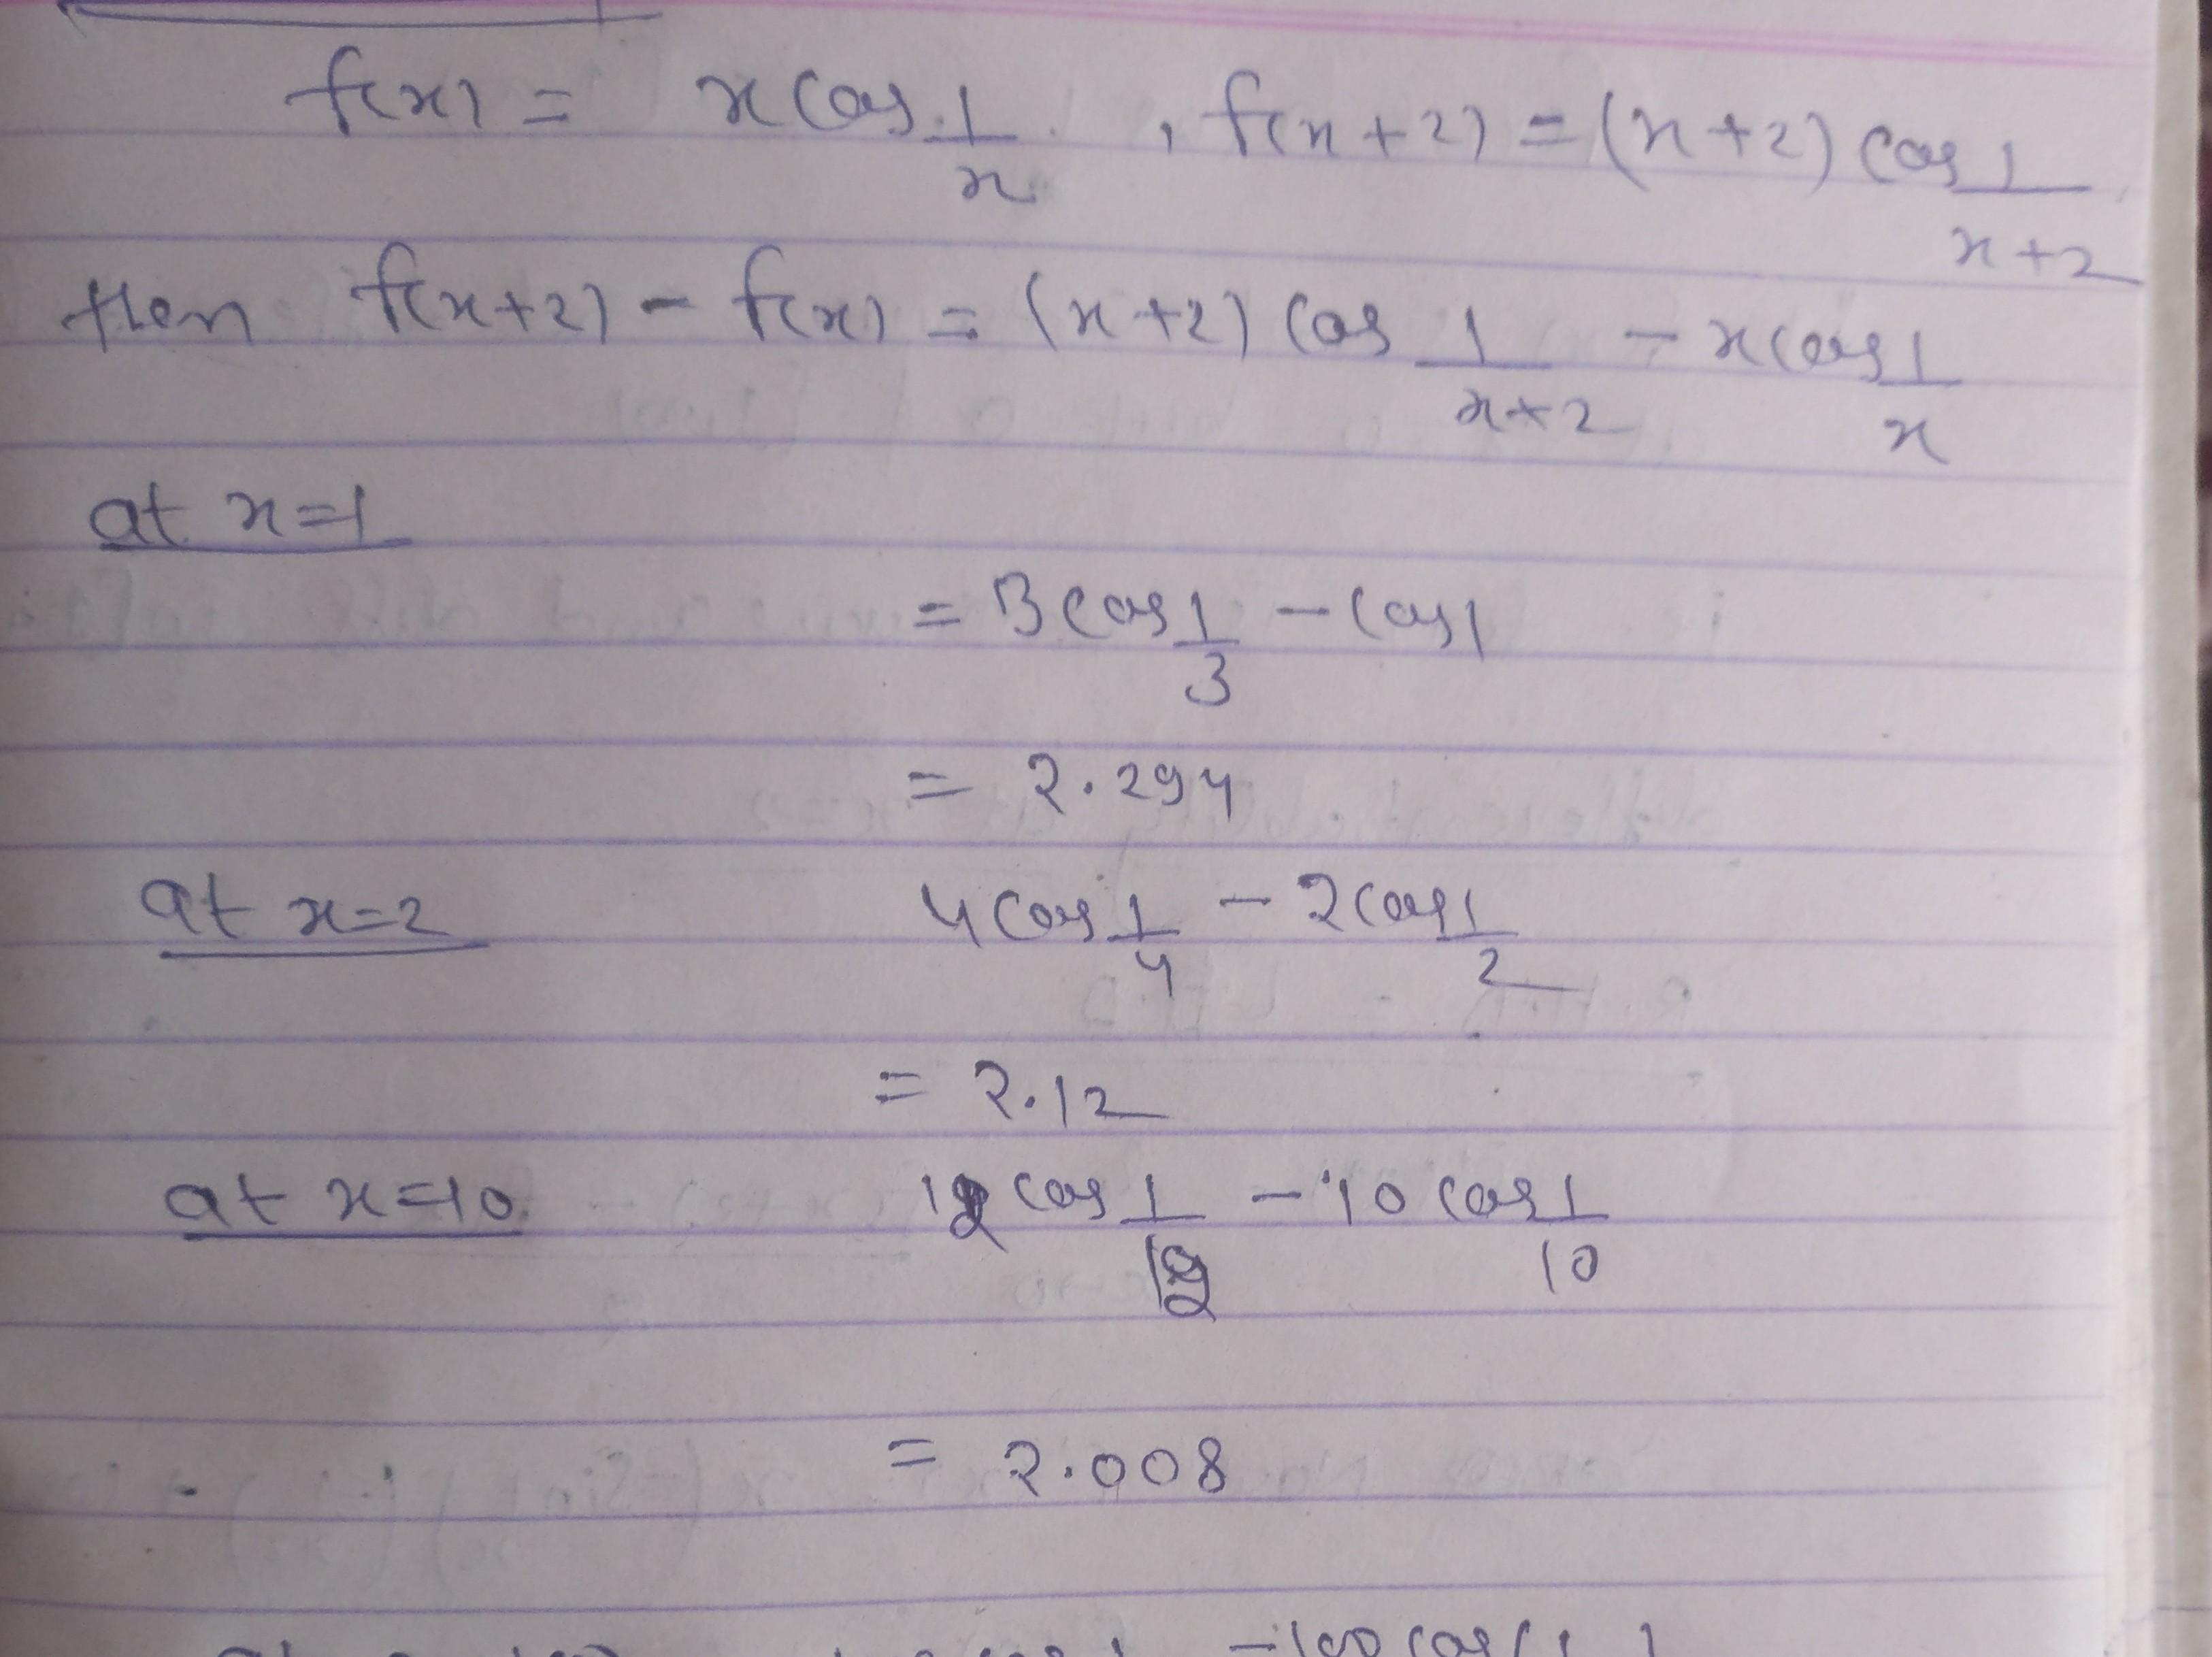 f(x) = x cos 1/x , f(x+2) = (x+2) cos 1/x+2
then f(x+2) - f(x) = (x+2) cos 1/x+2 - x cos 1/x
at x=1
= 3 cos 1/3 - cos 1
= 2.294
at x=2 4 cos 1/4 - 2 cos 1/2
= 2.12
at x=10 12 cos 1/12 - 10 cos 1/10
= 2.008
- 100 cos